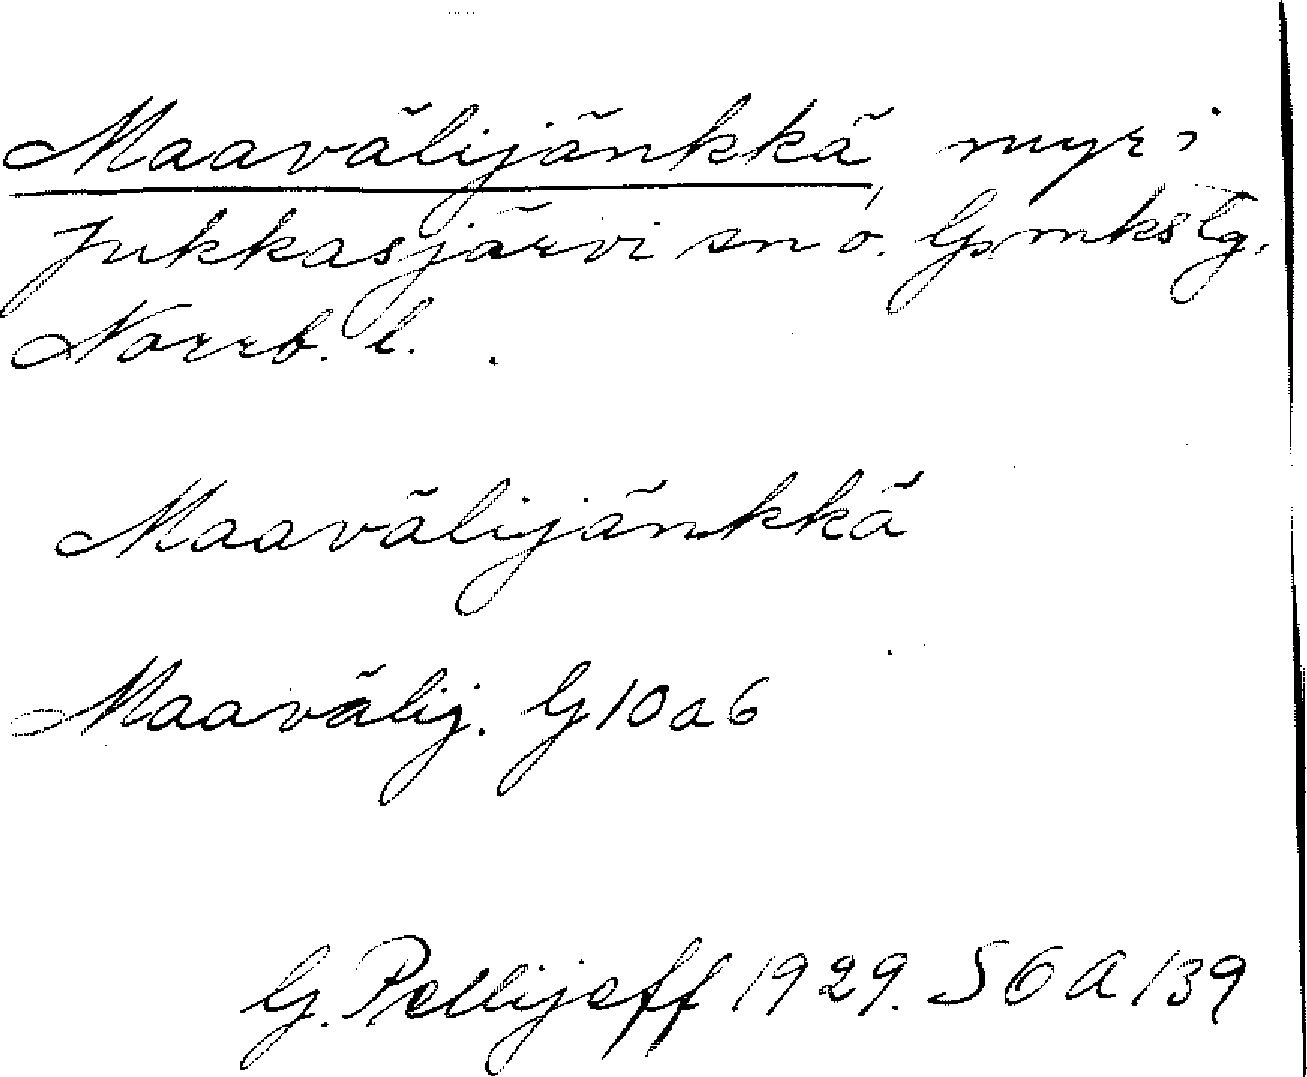 Maavälijänkkä, myr i
Jukkasjärvi sn o. Gp mkstg.
Norrb. l.
Maavälijänkkä
Maavälij. G 10 a 6
G. Pellijeff 1929. S 6 a 139